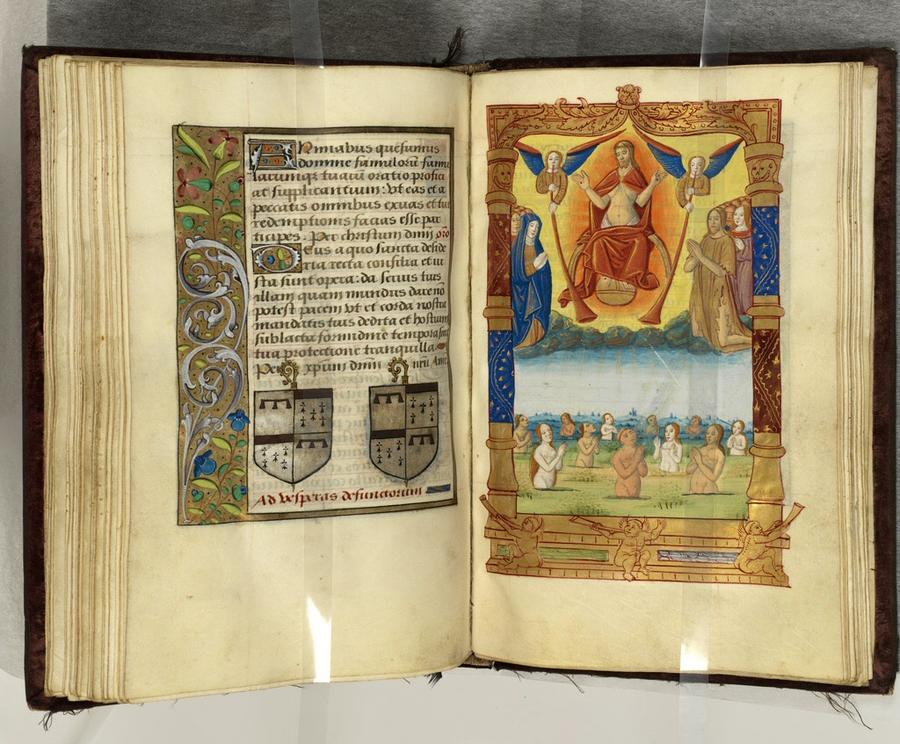 Animabus quesumus
domine famulorū famu
larumqz tuarū oratio profici
at supplicantium: vt eas et a
peccatis omnibus exuas et tue
redemptionis facias esse par
ticipes. Per christum dnm̄ oro
Deus a quo sancta deside
ria recta consilia et iu
sta sunt opera: da seruis tuis
illam quam mundus dare nō
potest pacem vt et corda nostra
mandatis tuis dedita et hostium
sublata formidine tempora sint
tua protectione tranquilla.
Per xp̄um dnm̄ nr̄m Amē
Ad vesperas defunctorum